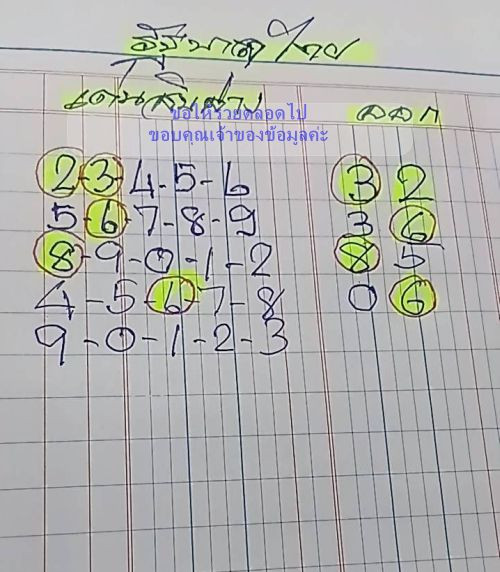 เด่นสิบล่าง ออก
ขอให้รวยตลอดไป
ขอบคุณเจ้าของข้อมูลค่ะ
2-3-4-5-6 3 2
5-6-7-8-9 3 6
8-9-0-1-2 8 5
4-5-6-7-8 0 6
9-0-1-2-3